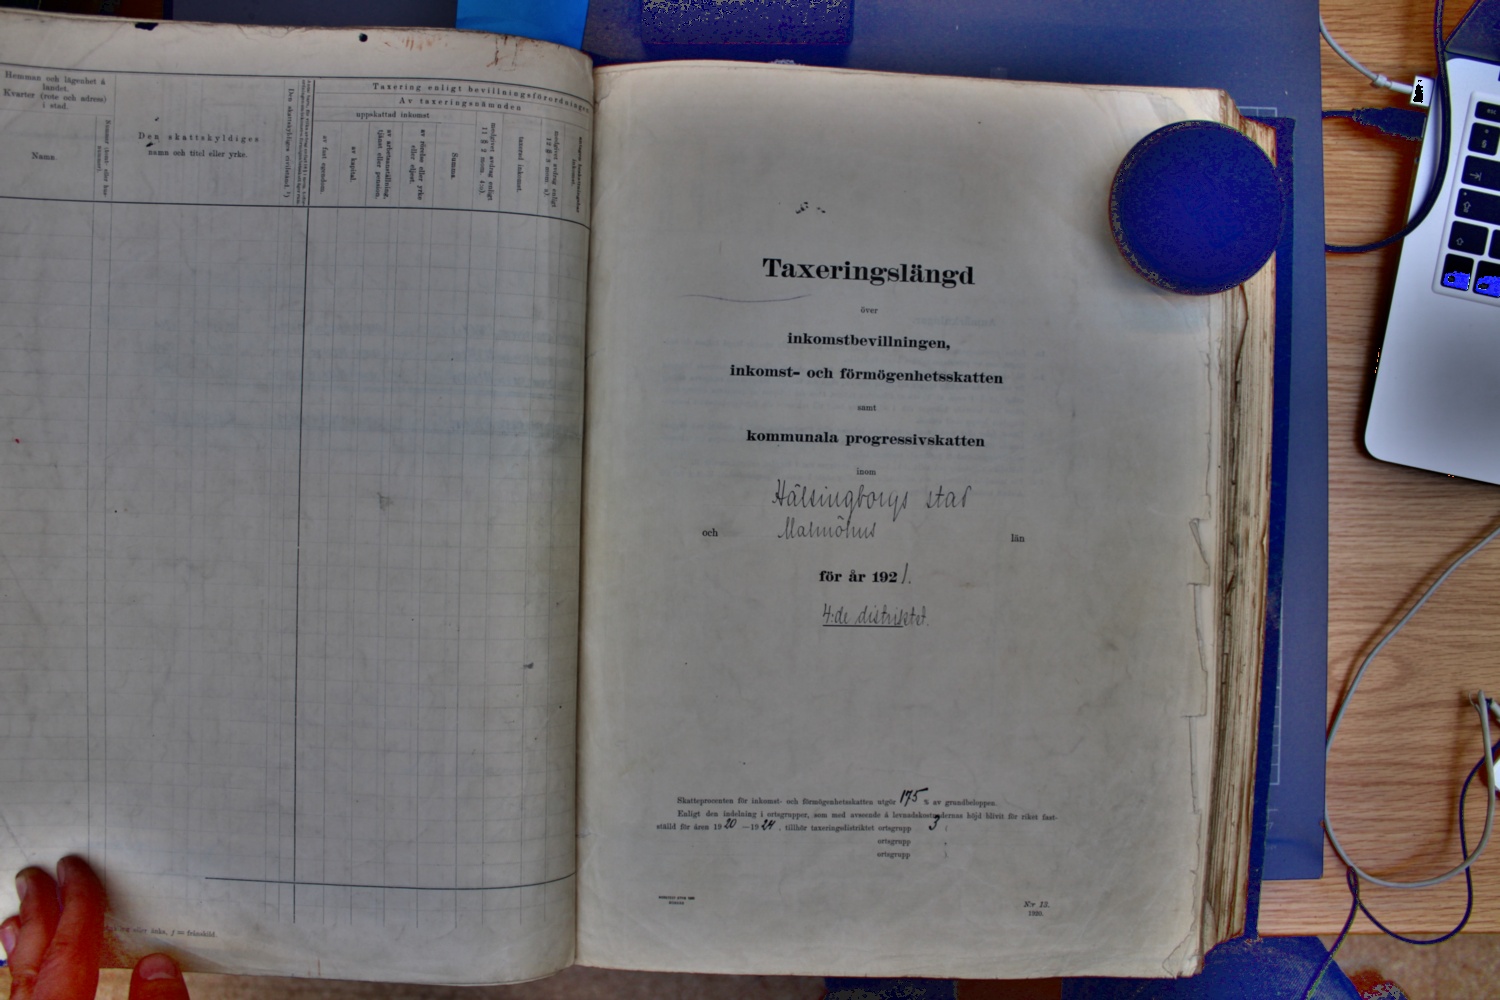 Hemman och lägenhet å
landet.
Kvarter (rote och adress)
i stad.
Namn.
Den skattskyldiges
namn och titel eller yrke.
Den skattskyldiges civilstånd. ²)
Taxering enligt bevillningsförordningen
Av taxeringsnämnden
uppskattad inkomst
av fast egendom.
av kapital.
av arbetsanställning,
tjänst eller pension.
av rörelse eller yrke
eller eljest.
Summa.
medgivet avdrag enligt
taxerad inkomst.
medgivet avdrag enligt
eller änka, f = frånskild.
Taxeringslängd
över
inkomstbevillningen,
inkomst- och förmögenhetsskatten
samt
kommunala progressivskatten
inom
Hälsingborgs stad
och Malmöhus län
för år 1921.
4:de distriktet.
Skatteprocenten för inkomst- och förmögenhetsskatten utgör 175 % av grundbeloppen.
Enligt den indelning i ortsgrupper, som med avseende å levnadskostnadernas höjd blivit för riket fast-
ställd för åren 1920—1924, tillhör taxeringsdistriktet ortsgrupp 3
ortsgrupp
ortsgrupp
N:r 13.
1920.